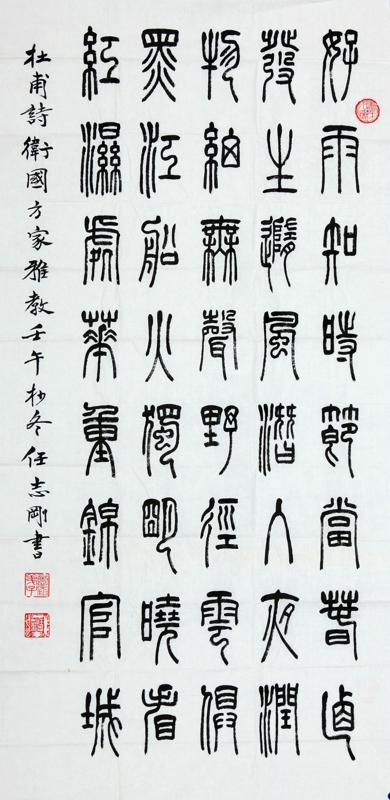 好雨知時節當春乃
發生隨風潛入夜潤
物細無聲野徑雲俱
黑江船火獨明曉看
紅濕處華重錦官城
杜甫詩衛國方家雅教壬午杪冬任志剛書